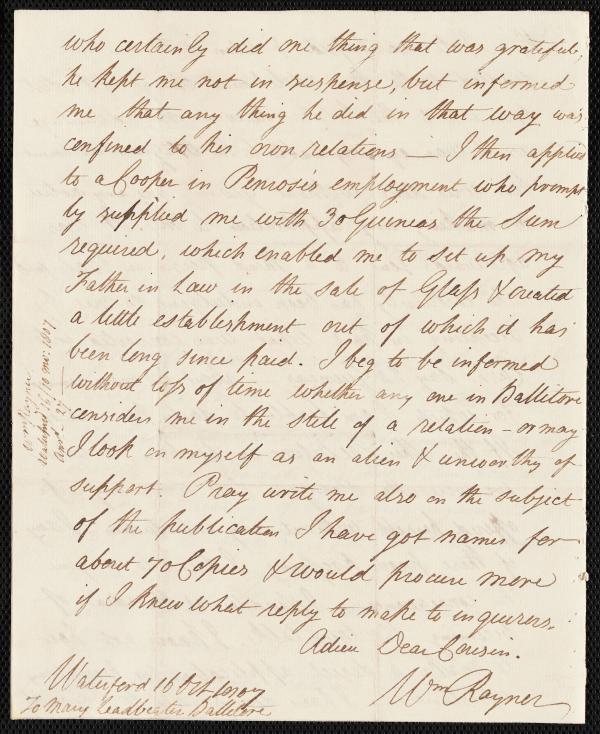 who certainly did one thing that was grateful,
he kept me not in suspense, but informed
me that any thing he did in that way was
confined to his own relations — I then applied
to a Cooper in Penrose's employment who prompt
ly supplied me with 30 Guineas the Sum
required, which enabled me to set up my
Father in Law in the sale of Glass & created
a little establishment out of which it has
been long since paid. I beg to be informed
without loss of time whether any one in Ballitore
considers me in the stile of a relation - or may
I look on myself as an alien & unworthy of
support. Pray write me also on the subject
of the publication I have got names for
about 70 Copies & would procure more
if I knew what reply to make to inquirers.
Adieu Dear Cousin.
Wm Rayner
Waterford 16 Oct 1807
To Mary Leadbeater Ballitore
Wm Rayner
Waterford 16/10 mo: 1807